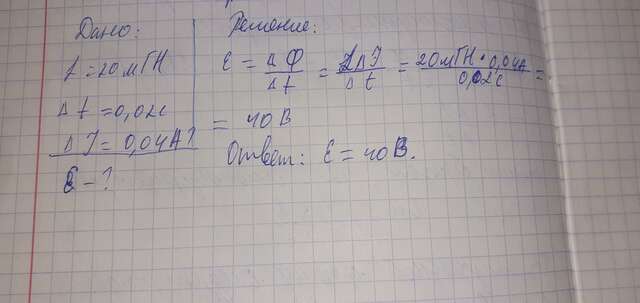 Дано:
L = 20 мГН
Δt = 0,02с
ΔI = 0,04А?
Ɛ - ?
Решение:
Ɛ = ΔФ/Δt = LΔI/Δt = 20мГН · 0,04А/0,02с =
= 40 В
Ответ: Ɛ = 40 В.